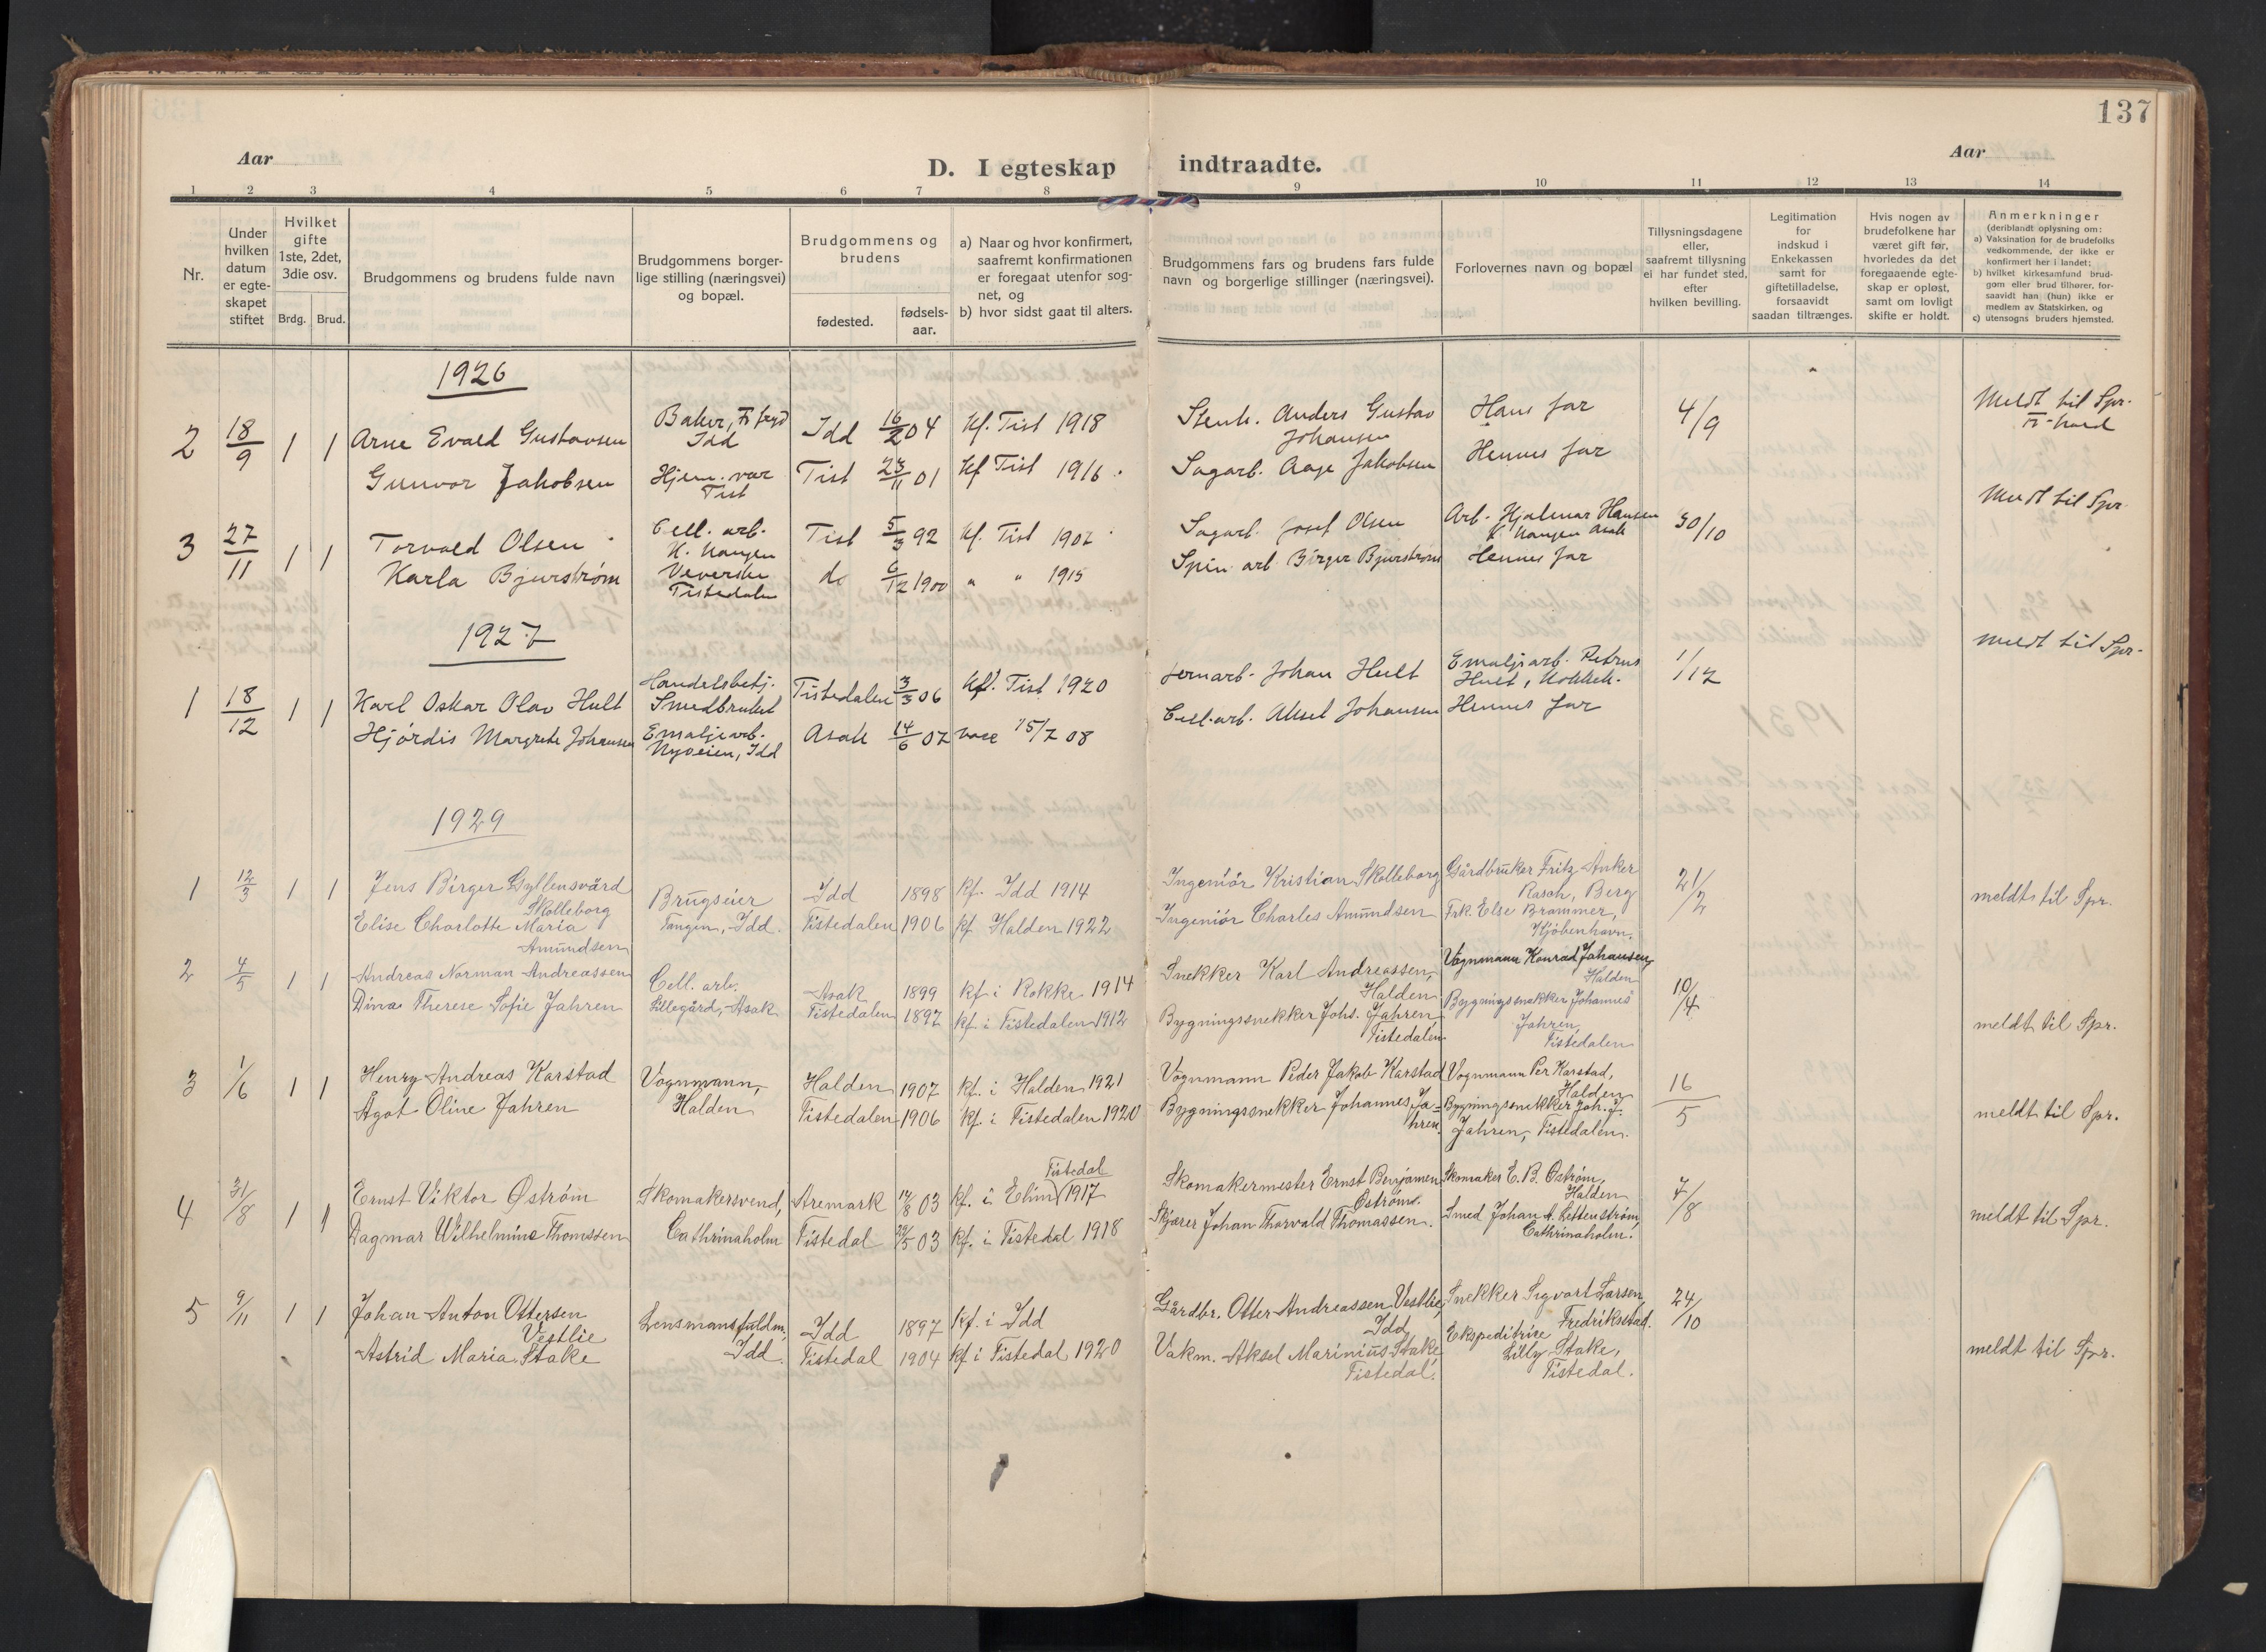 137
Aar
D. I egteskap indtraadte.
Aar
1 2 3 4 5 6 7 8 9 10 11 12 13 14
Nr.
Under hvilken datum er egte-skapet stiftet
Hvilket gifte 1ste, 2det, 3die osv.
Brdg. Brud.
Brudgommens og brudens fulde navn
Brudgommens borger-
lige stilling (næringsvei)
og bopæl.
Brudgommens og
brudens
fødested.
fødsels-
aar.
a) Naar og hvor konfirmert,
saafremt konfirmationen
er foregaat utenfor sog-
net, og
b) hvor sidst gaat til alters.
Brudgommens fars og brudens fars fulde
navn og borgerlige stillinger (næringsvei).
Forlovernes navn og bopæl
Tillysningsdagene
eller,
saafremt tillysning
ei har fundet sted,
efter
hvilken bevilling.
Legitimation
for
indskud i
Enkekassen
samt for
giftetilladelse,
forsaavidt
saadan tiltrænges.
Hvis nogen av
brudefolkene har
været gift før,
hvorledes da det
foregaaende egte-
skap er opløst,
samt om lovligt
skifte er holdt.
Anmerkninger
(deriblandt oplysning om:
a) Vaksination for de brudefolks
vedkommende, der ikke er
konfirmert her i landet;
b) hvilket kirkesamfund brud-
gom eller brud tilhører, for-
saavidt han (hun) ikke er
medlem av Statskirken, og
c) utensogns bruders hjemsted.
1926
2 18/9 1 1 Arne Evald Gustavsen
Baker,
Idd
Idd 16/2 04 Kf. Tist 1918
Stenh. Anders Gustav
Johansen
Hans far
4/9
Meldt til Spr.
Gunvor Jakobsen
Hjem. vær
Tist
Tist 23/11 01 Kf Tist 1916
Sagarb. Aage Jakobsen
Hennes far
3 27/11 1 1 Torvald Olsen
Cell. arb.
Tist 5/3 92 Kf. Tist 1907
Sagarb. Josef Olsen
Arb. Hjalmar Hansen
Asak
30/10
Meldt til Spr.
Karla Bjurstrøm
Veverske
Tistedalen
do 6/12 1900 " " 1915
Spin. arb. Birger Bjurstrøm
Hennes far
1927
1 18/12 1 1 Karl Oskar Olav Hult
Handelsbetj.
Smedbruket
Tistedalen 3/3 06 Kf. Tist 1920
Jernarb. Johan Hult
Emaljearb. Petrus
Hult,
1/12
Meldt til Spr.
Hjördis Margrete Johansen
Emaljearb.
Nyveien, Idd
Asak 14/6 07 vacc 15/7 08
Cell.arb. Aksel Johansen
Hennes far
1929
1 12/3 1 1 Jens Birger Gyllensvärd
Skolleborg
Brugseier
Tangen, Idd.
Idd 1898 kf. Idd 1914
Ingeniör Kristian Skolleborg
Gårdbruker Fritz Anker
Rasch, Berg
21/2
meldt til Spr.
Elise Charlotte Maria
Amundsen
Tistedalen 1906 kf. Halden 1922
Ingeniör Charles Amundsen
Frk. Else Brammer,
Kjöbenhavn.
2 4/5 1 1 Andreas Norman Andreassen
Cell. arb.
Lillegård, Asak
Asak 1899 kf i Rokke 1914
Snekker Karl Andreassen,
Halden
Vognmann Konrad Johansen,
Halden
10/4
meldt til Spr.
Dina Therese Sofie Jahren
Tistedalen 1897 kf. i Tistedalen 1912
Bygningssnekker Johs. Jahren
Tistedalen
Bygningssnekker Johannes
Jahren,
Tistedalen
3 1/6 1 1 Henry Andreas Karstad
Vognmann,
Halden
Halden 1907 kf. i Halden 1921
Vognmann Peder Jakob Karstad
Vognmann Per Karstad,
Halden
16/5
meldt til Spr.
Ågot Oline Jahren
Tistedalen 1906 kf. i Tistedalen 1920
Bygningssnekker Johannes Ja-
hren.
Bygningssnekker Joh. J.
Jahren, Tistedalen.
4 31/8 1 1 Ernst Viktor Øström
Skomakersvend,
Cathrinaholm
Aremark 14/8 03 kf. i Elim 1917
Tistedal
Skomakermester Ernst Benjamen
Öström.
Skomaker E. B. Öström,
Halden
7/8
meldt til Spr.
Dagmar Wilhelmine Thomssen
Tistedal 29/5 03 kf. i Tistedal 1918
Skjærer Johan Thorvald Thomassen.
Smed Johan A. Zettenström,
Cathrinaholm.
5 9/11 1 1 Johan Anton Ottersen
Vestlie
Lensmansfuldm,
Idd.
Idd 1897 kf. i Idd
Gårdbr. Otter Andreassen Vestlie,
Idd
Snekker Sigvart Larsen,
Fredriksstad.
24/10
meldt til Spr.
Astrid Maria Stake
Tistedal 1904 kf i Tistedal 1920
Vakm. Aksel Marinius Stake
Tistedal.
Ekspeditrise
Lilly Stake,
Tistedal.